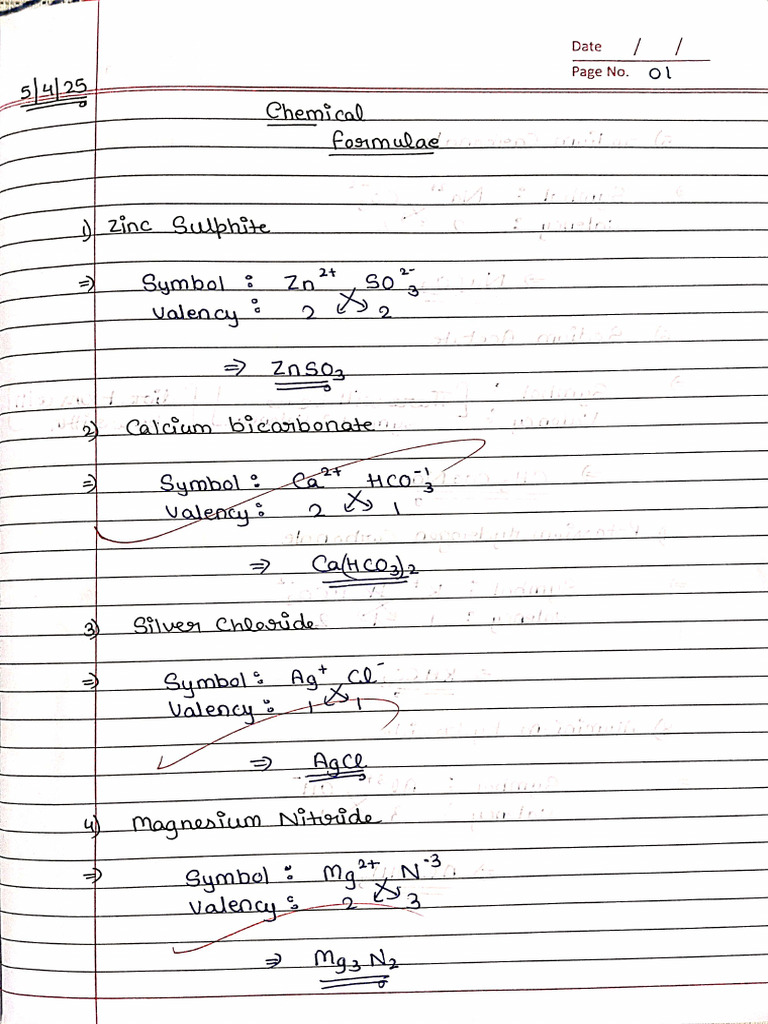 Date / /
Page No. 01
5/4/25
Chemical
formulae
1) Zinc Sulphite
⇒ Symbol : Zn²⁺ SO₃²⁻
Valency : 2 2
⇒ ZnSO₃
2) Calcium bicarbonate
⇒ Symbol : Ca²⁺ HCO₃⁻¹
Valency : 2 1
⇒ Ca(HCO₃)₂
3) Silver Chloride
⇒ Symbol : Ag⁺ Cl⁻
Valency : 1 1
⇒ AgCl
4) Magnesium Nitride
⇒ Symbol : Mg²⁺ N⁻³
Valency : 2 3
⇒ Mg₃N₂